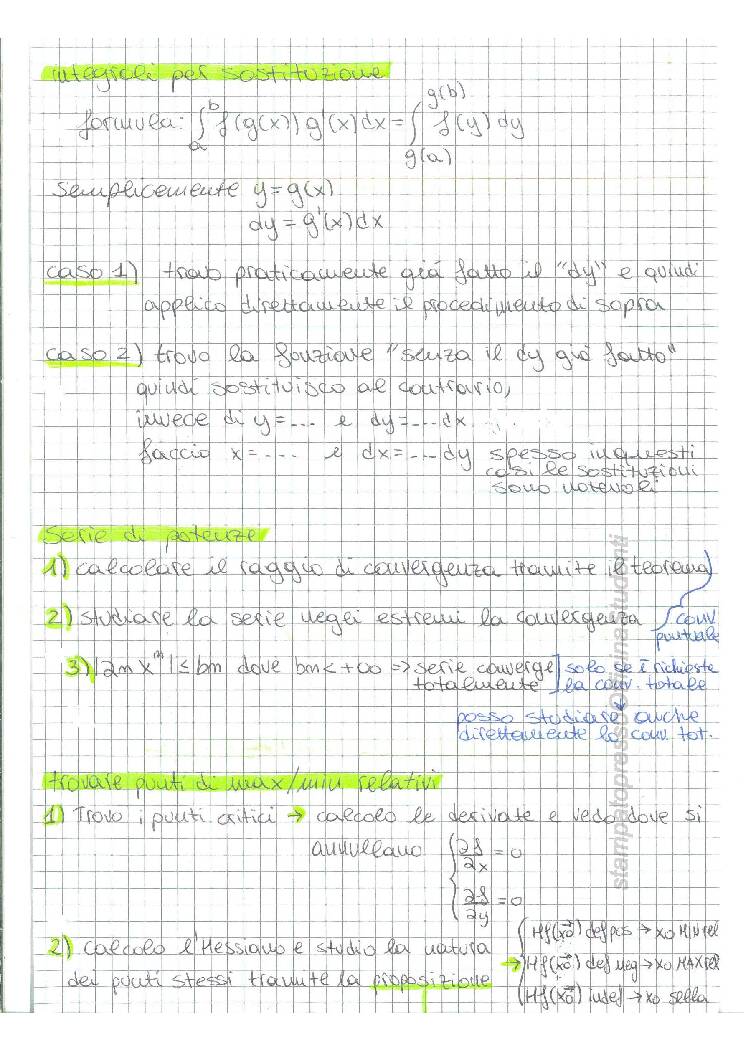 integrali per sostituzione
formula: ∫_a^b f(g(x)) g'(x) dx = ∫_{g(a)}^{g(b)} f(y) dy
semplicemente y = g(x)
dy = g'(x) dx
caso 1) trovo praticamente già fatto il "dy" e quindi
applico direttamente il procedimento di sopra
caso 2) trovo la funzione "senza il dy già fatto"
quindi sostituisco al contrario,
invece di y=... e dy=...dx
faccio x=.... e dx=...dy spesso in questi
casi le sostituzioni
sono notevoli
serie di potenze
1) calcolare il raggio di convergenza tramite il teorema
2) studiare la serie negli estremi la convergenza
conv.
puntuale
3) |an x^n| ≤ bn dove bn < +∞ => serie converge
totalmente
solo se è richiesta
la conv. totale
posso studiare anche
direttamente la conv. tot.
trovare punti di max/min relativi
1) Trovo i punti critici → calcolo le derivate e vedo dove si
annullano { ∂f/∂x = 0
∂f/∂y = 0
2) calcolo l'Hessiano e studio la natura
dei punti stessi tramite la proposizione
→ { Hf(x0) def pos → x0 MIN rel
Hf(x0) def neg → x0 MAX rel
Hf(x0) indef → x0 sella
stampatopressoOfficinastudenti